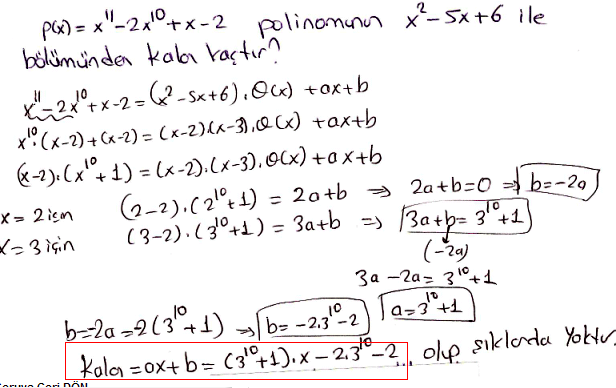 P(x) = x¹¹ - 2x¹⁰ + x - 2 polinomunun x² - 5x + 6 ile
bölümünden kalan kaçtır?
x¹¹ - 2x¹⁰ + x - 2 = (x² - 5x + 6) . Q(x) + ax + b
x¹⁰ . (x - 2) + (x - 2) = (x - 2) . (x - 3) . Q(x) + ax + b
(x - 2) . (x¹⁰ + 1) = (x - 2) . (x - 3) . Q(x) + ax + b
x = 2 için (2 - 2) . (2¹⁰ + 1) = 2a + b ⇒ 2a + b = 0 ⇒ b = -2a
x = 3 için (3 - 2) . (3¹⁰ + 1) = 3a + b ⇒ 3a + b = 3¹⁰ + 1
(-2a)
3a - 2a = 3¹⁰ + 1
a = 3¹⁰ + 1
b = -2a = -2(3¹⁰ + 1) ⇒ b = -2.3¹⁰ - 2
Kalan = ax + b = (3¹⁰ + 1) . x - 2.3¹⁰ - 2 olup şıklarda yoktur.
Soruya Geri DÖN